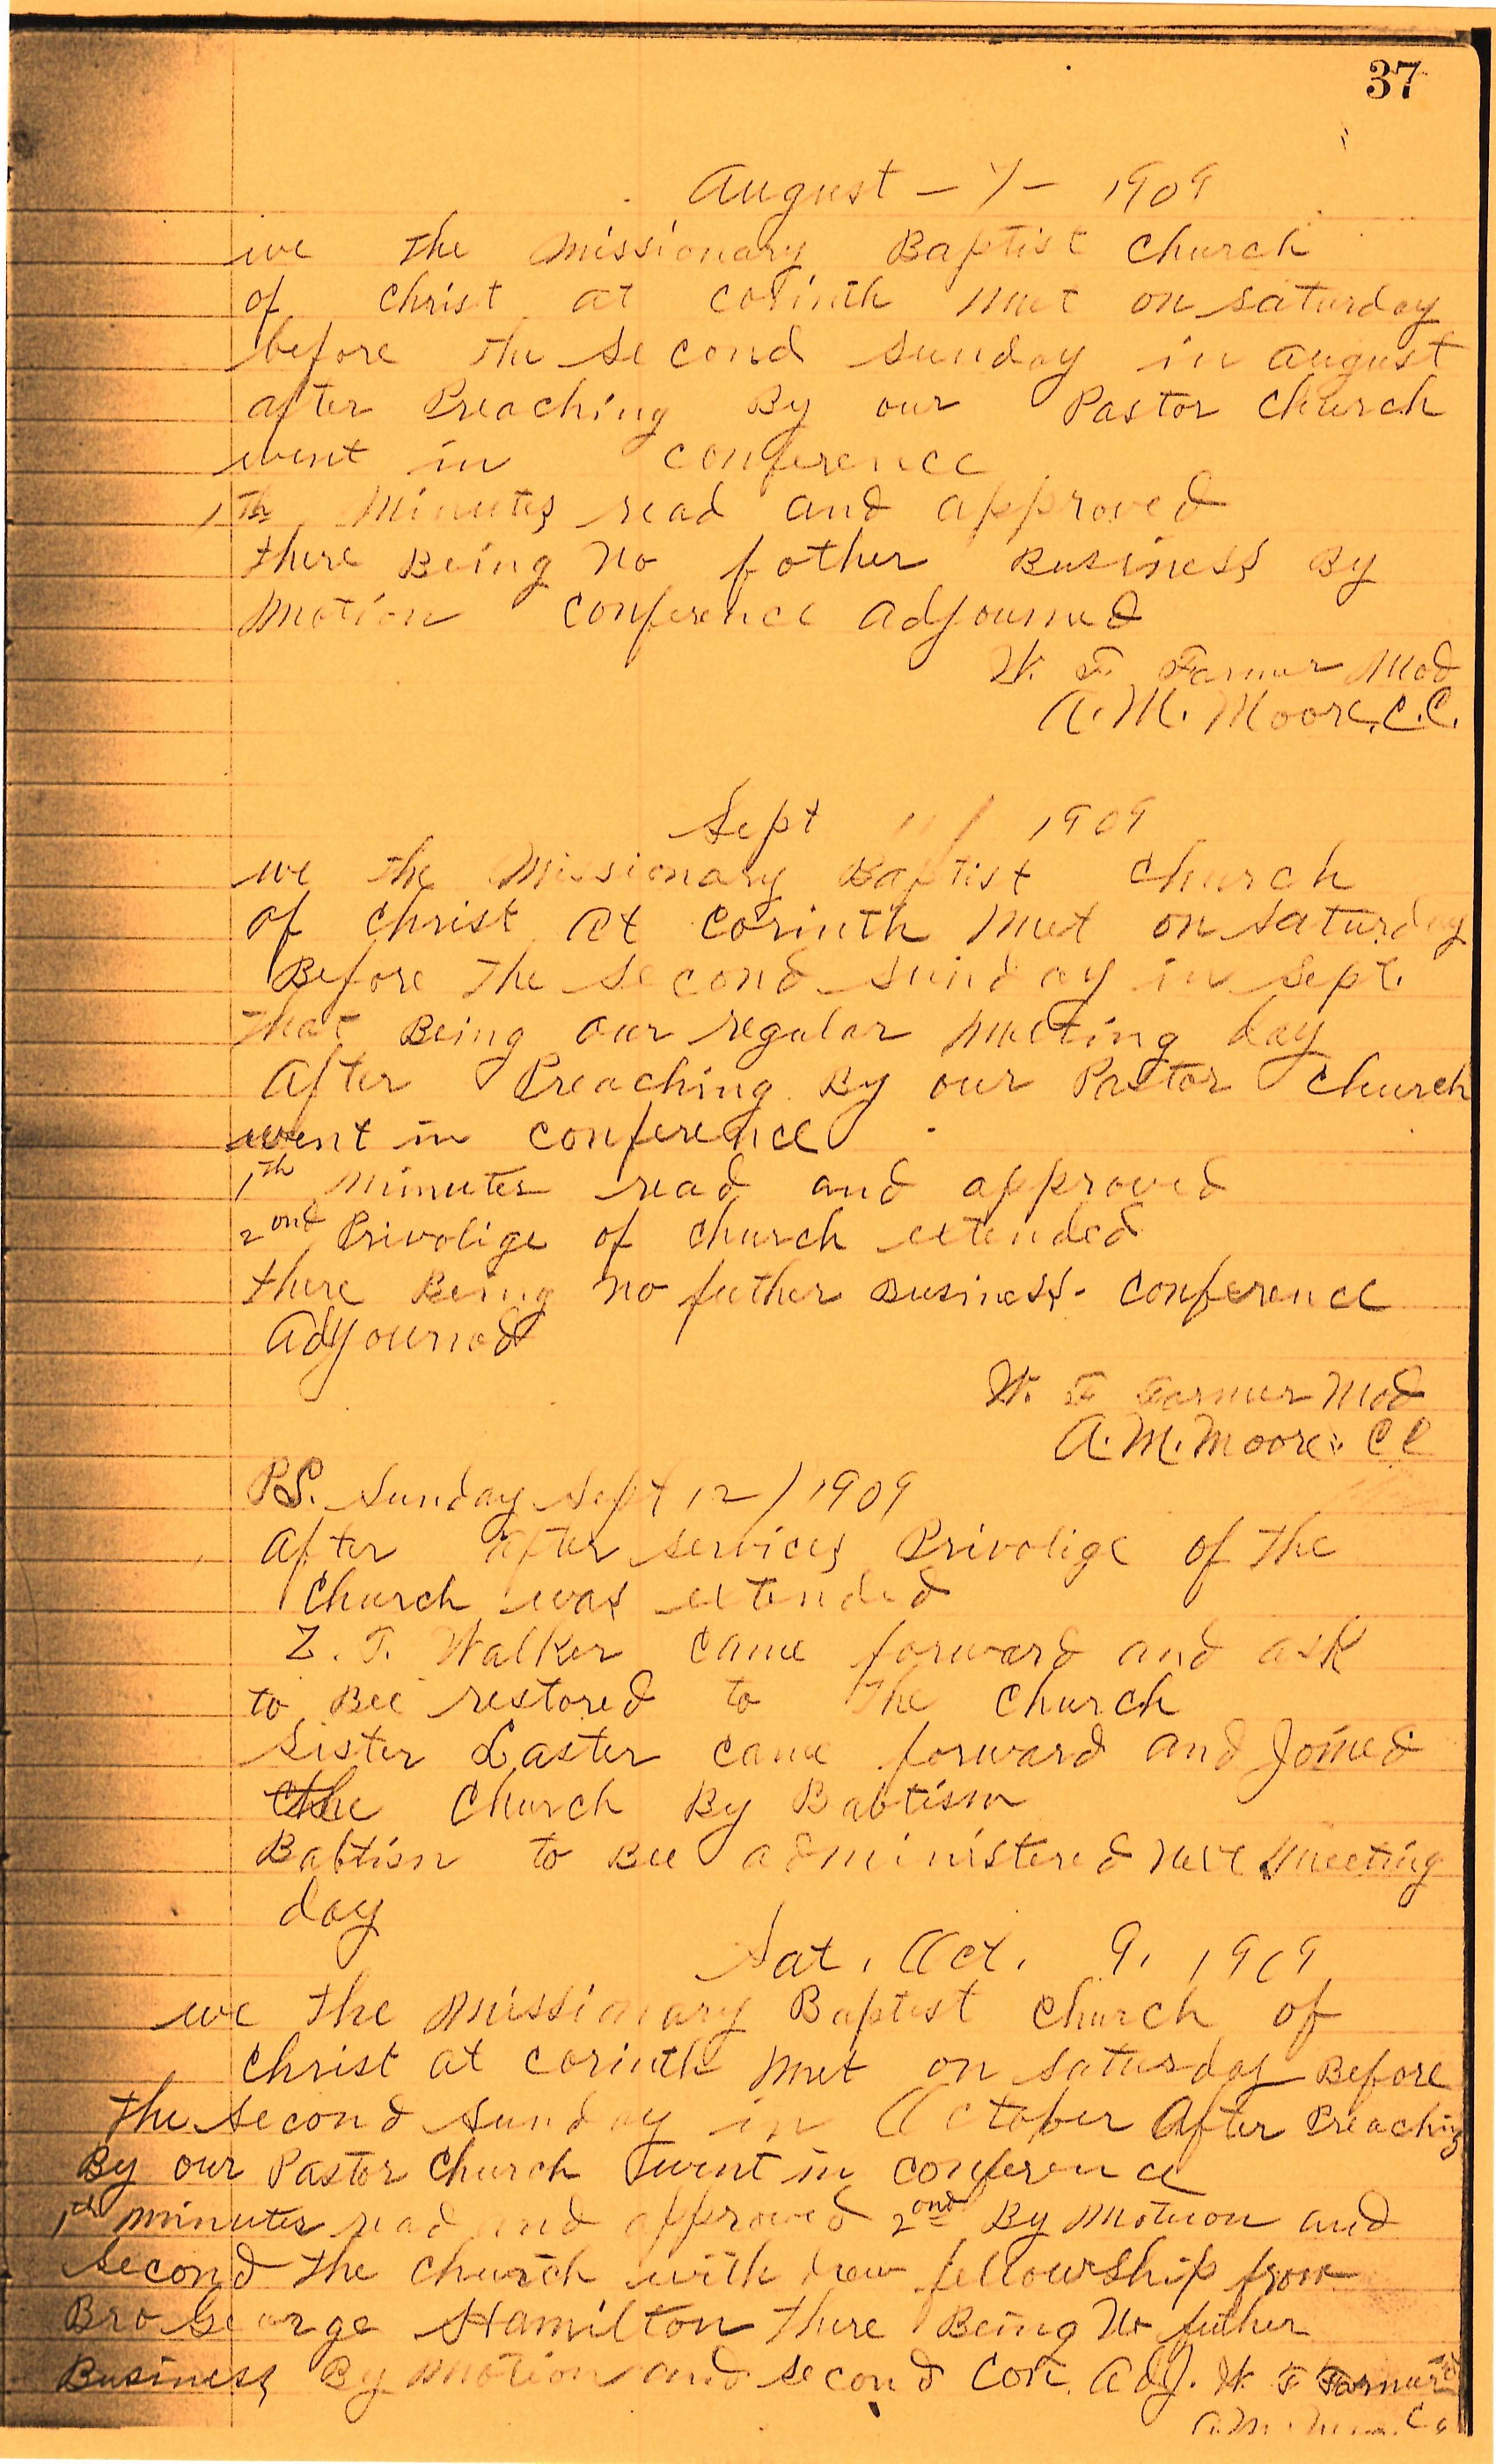 37
August - 7 - 1909
we the Missionary Baptist Church
of Christ at Corinth met on Saturday
before the second sunday in august
after Preaching By our Pastor Church
went in conference
1th Minutes read and approved
there Being no fother Business By
Motion Conference adjourned
W. F. Farmer Mod
A. M. Moore, C.C.
Sept 11 / 1909
we the Missionary Baptist Church
of Christ At Corinth Met on Saturday
Before the second sunday in Sept.
that Being our regular Meeting day
After Preaching By our Pastor Church
went in conference
1th Minutes read and approved
2ond Privolige of Church extended
there Being no futher Business. Conference
Adjournod
W. F Farmer Mod
A. M. Moore. CC
PS. Sunday Sept 12 / 1909
After after services Privolige of the
Church was extended
Z. T. Walker came forward and ask
to Bee restored to the Church
Sister Laster came forward and Joined
the Church By Babtism
Babtism to Bee administered next Meeting
day
Sat. Oct. 9, 1909
we the Missionary Baptist Church of
Christ at Corinth Met on Saturday Before
the second Sunday in October After Preaching
By our Pastor Church went in conference
1th Minutes read and approved 2ond By Motion and
second the Church with drew fellowship from
Bro George Hamilton there Being no futher
Business By Motion and second Con. Adj. W F Farmer
A. M.